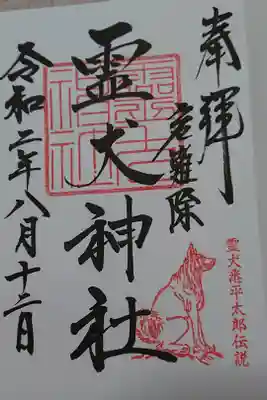 奉拝
危難除
霊犬神社
令和二年八月十二日
霊犬悉平太郎伝説